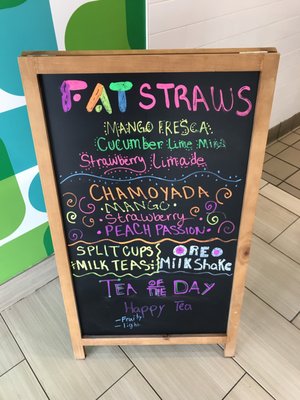 FAT STRAWS
MANGO FRESCA
CUCUMBER LIME MINT
Strawberry Limeade
CHAMOYADA
• MANGO
• Strawberry •
• PEACH PASSION •
SPLIT CUPS
MILK TEAS
OREO
MilkShake
TEA OF THE DAY
Happy Tea
- Fruity
- light